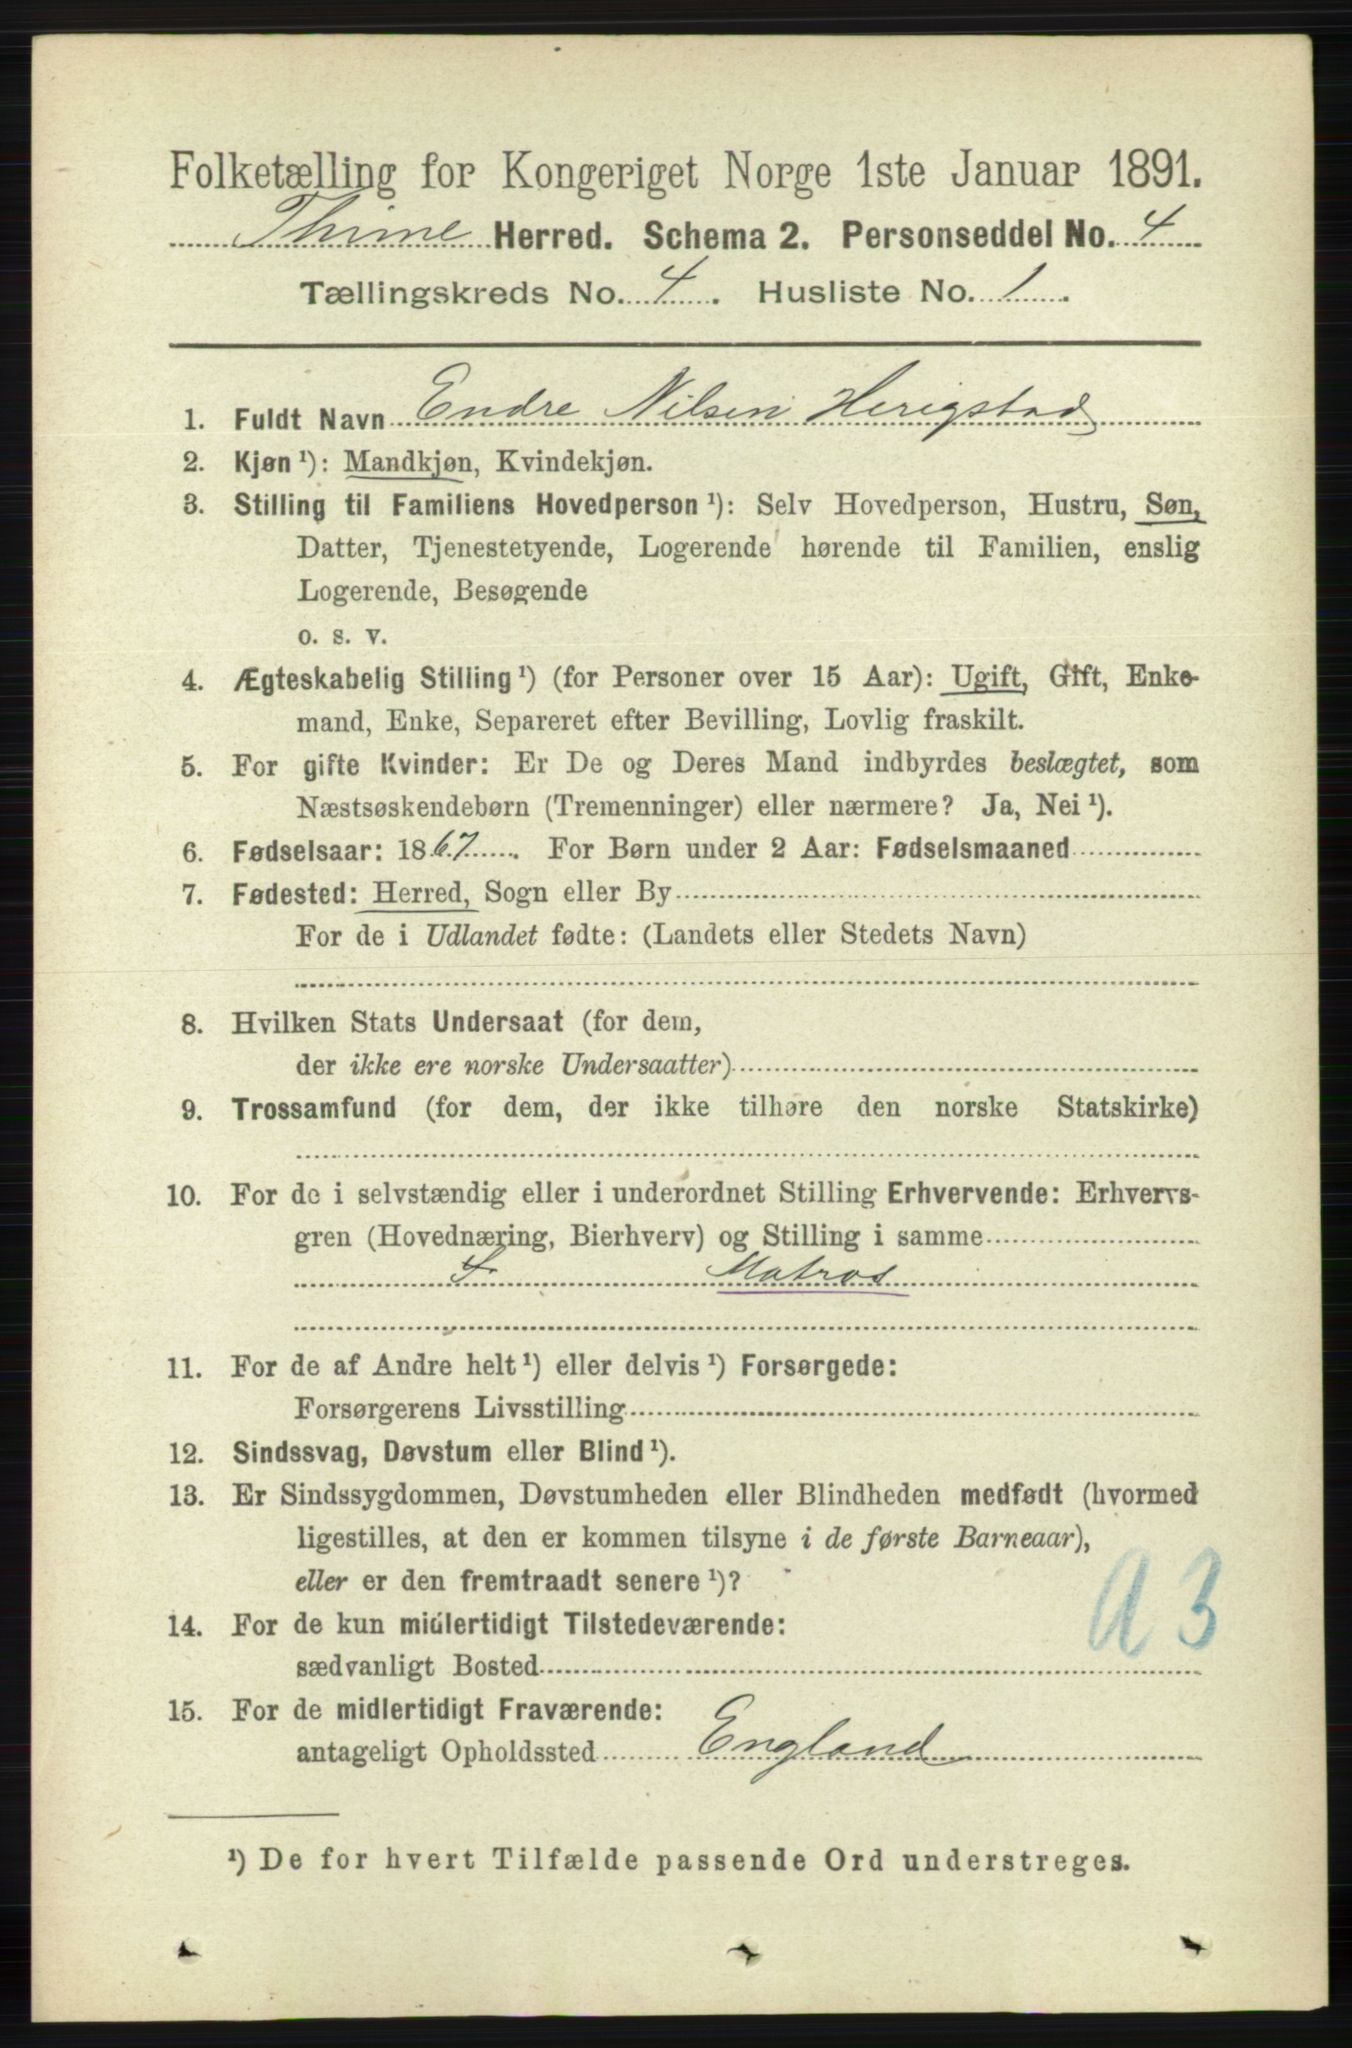 Folketælling for Kongeriget Norge 1ste Januar 1891.
Thime Herred. Schema 2. Personseddel No. 4
Tællingskreds No. 4. Husliste No. 1.
1. Fuldt Navn Endre Nilsen Herigstad
2. Kjøn ¹): Mandkjøn, Kvindekjøn.
3. Stilling til Familiens Hovedperson ¹): Selv Hovedperson, Hustru, Søn,
Datter, Tjenestetyende, Logerende hørende til Familien, enslig
Logerende, Besøgende
o. s. v.
4. Ægteskabelig Stilling ¹) (for Personer over 15 Aar): Ugift, Gift, Enke-
mand, Enke, Separeret efter Bevilling, Lovlig fraskilt.
5. For gifte Kvinder: Er De og Deres Mand indbyrdes beslægtet, som
Næstsøskendebørn (Tremenninger) eller nærmere? Ja, Nei ¹).
6. Fødselsaar: 1867. For Børn under 2 Aar: Fødselsmaaned
7. Fødested: Herred, Sogn eller By
For de i Udlandet fødte: (Landets eller Stedets Navn)
8. Hvilken Stats Undersaat (for dem,
der ikke ere norske Undersaatter)
9. Trossamfund (for dem, der ikke tilhøre den norske Statskirke)
10. For de i selvstændig eller i underordnet Stilling Erhvervende: Erhvervs-
gren (Hovednæring, Bierhverv) og Stilling i samme
Matros
11. For de af Andre helt ¹) eller delvis ¹) Forsørgede:
Forsørgerens Livsstilling
12. Sindssvag, Døvstum eller Blind ¹).
13. Er Sindssygdommen, Døvstumheden eller Blindheden medfødt (hvormed
ligestilles, at den er kommen tilsyne i de første Barneaar),
eller er den fremtraadt senere ¹)?
14. For de kun midlertidigt Tilstedeværende:
sædvanligt Bosted
a 3
15. For de midlertidigt Fraværende:
antageligt Opholdssted England
¹) De for hvert Tilfælde passende Ord understreges.